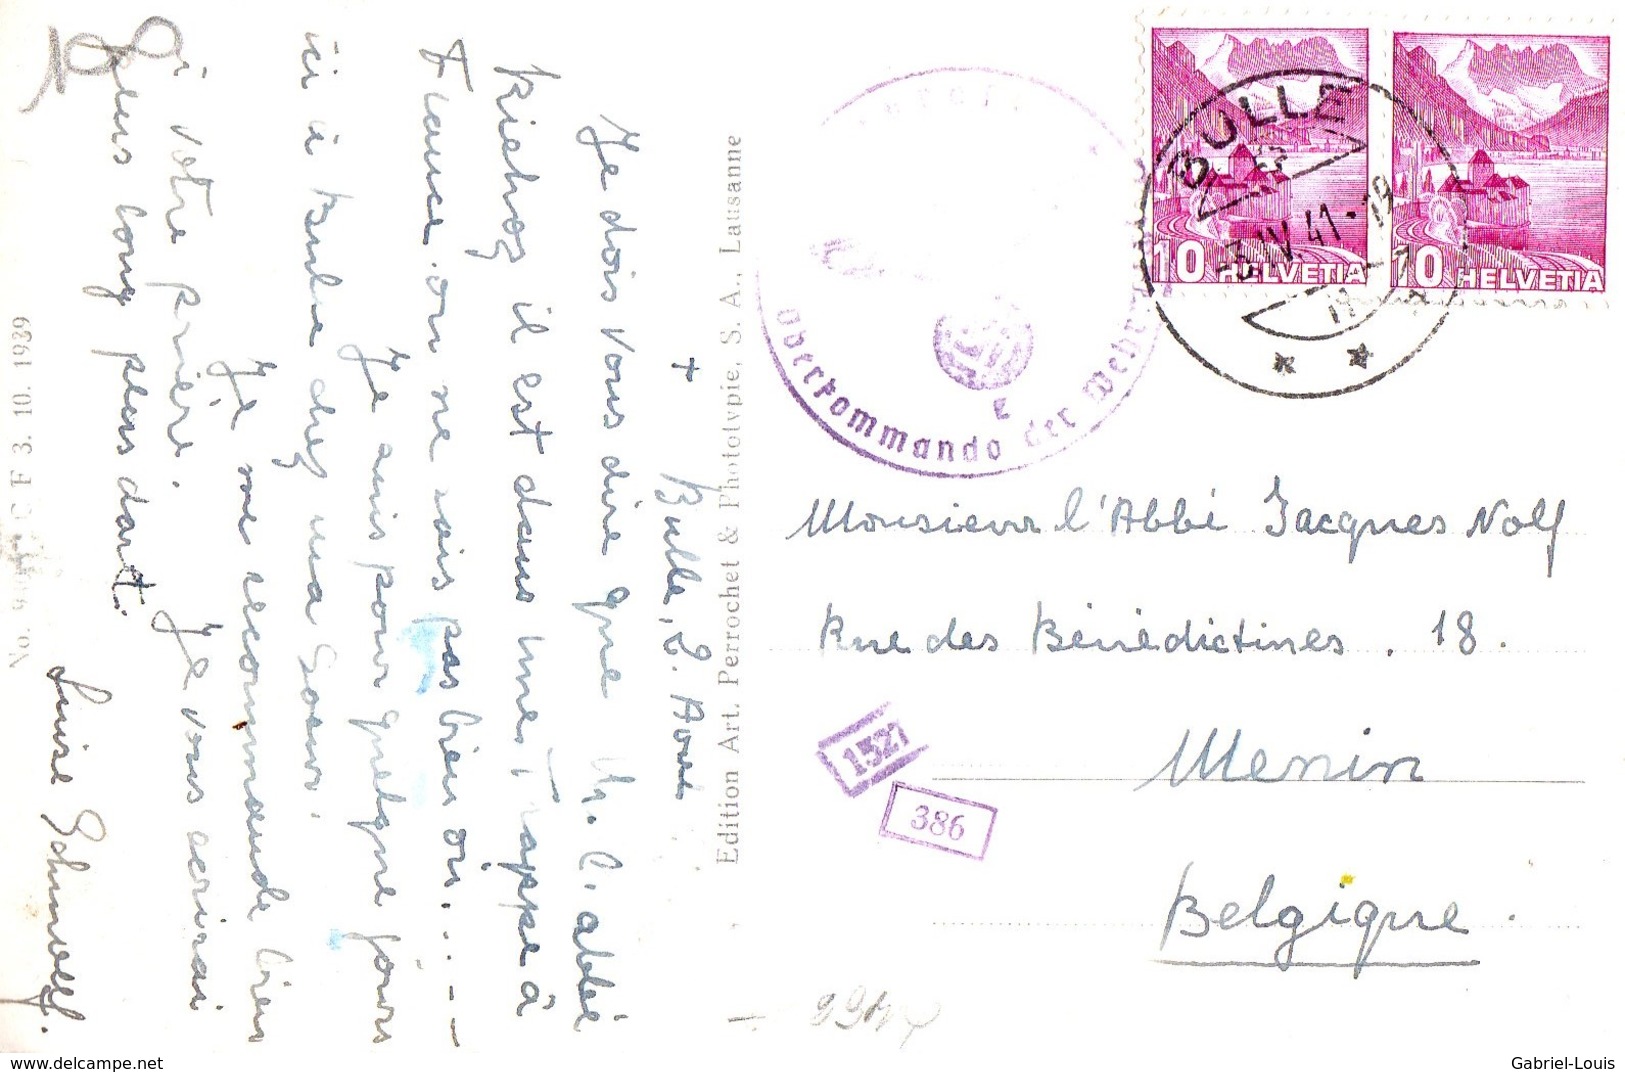 +
Bulle, 2. Avril
Je dois vous dire que Mr. l'abbé
Kriehog il est dans une Trappe à
France on ne sais pas bien où....--
Je suis pour quelque jours
ici à Bulle chez ma Soeur.
Je me recommande bien
à votre prière. Je vous écrirai
plus long plus dart.
Luise Schmutz.
No. C F 3. 10. 1939
Edition Art. Perrochet & Phototypie, S. A., Lausanne
10 HELVETIA
10 HELVETIA
BULLE
-3.IV.41-19
Oberkommando der Wehr
E
Monsieur l'Abbé Jacques Nolf
Rue des Bénédictines. 18.
Menin
Belgique.
1521
386
www.delcampe.net
Gabriel-Louis